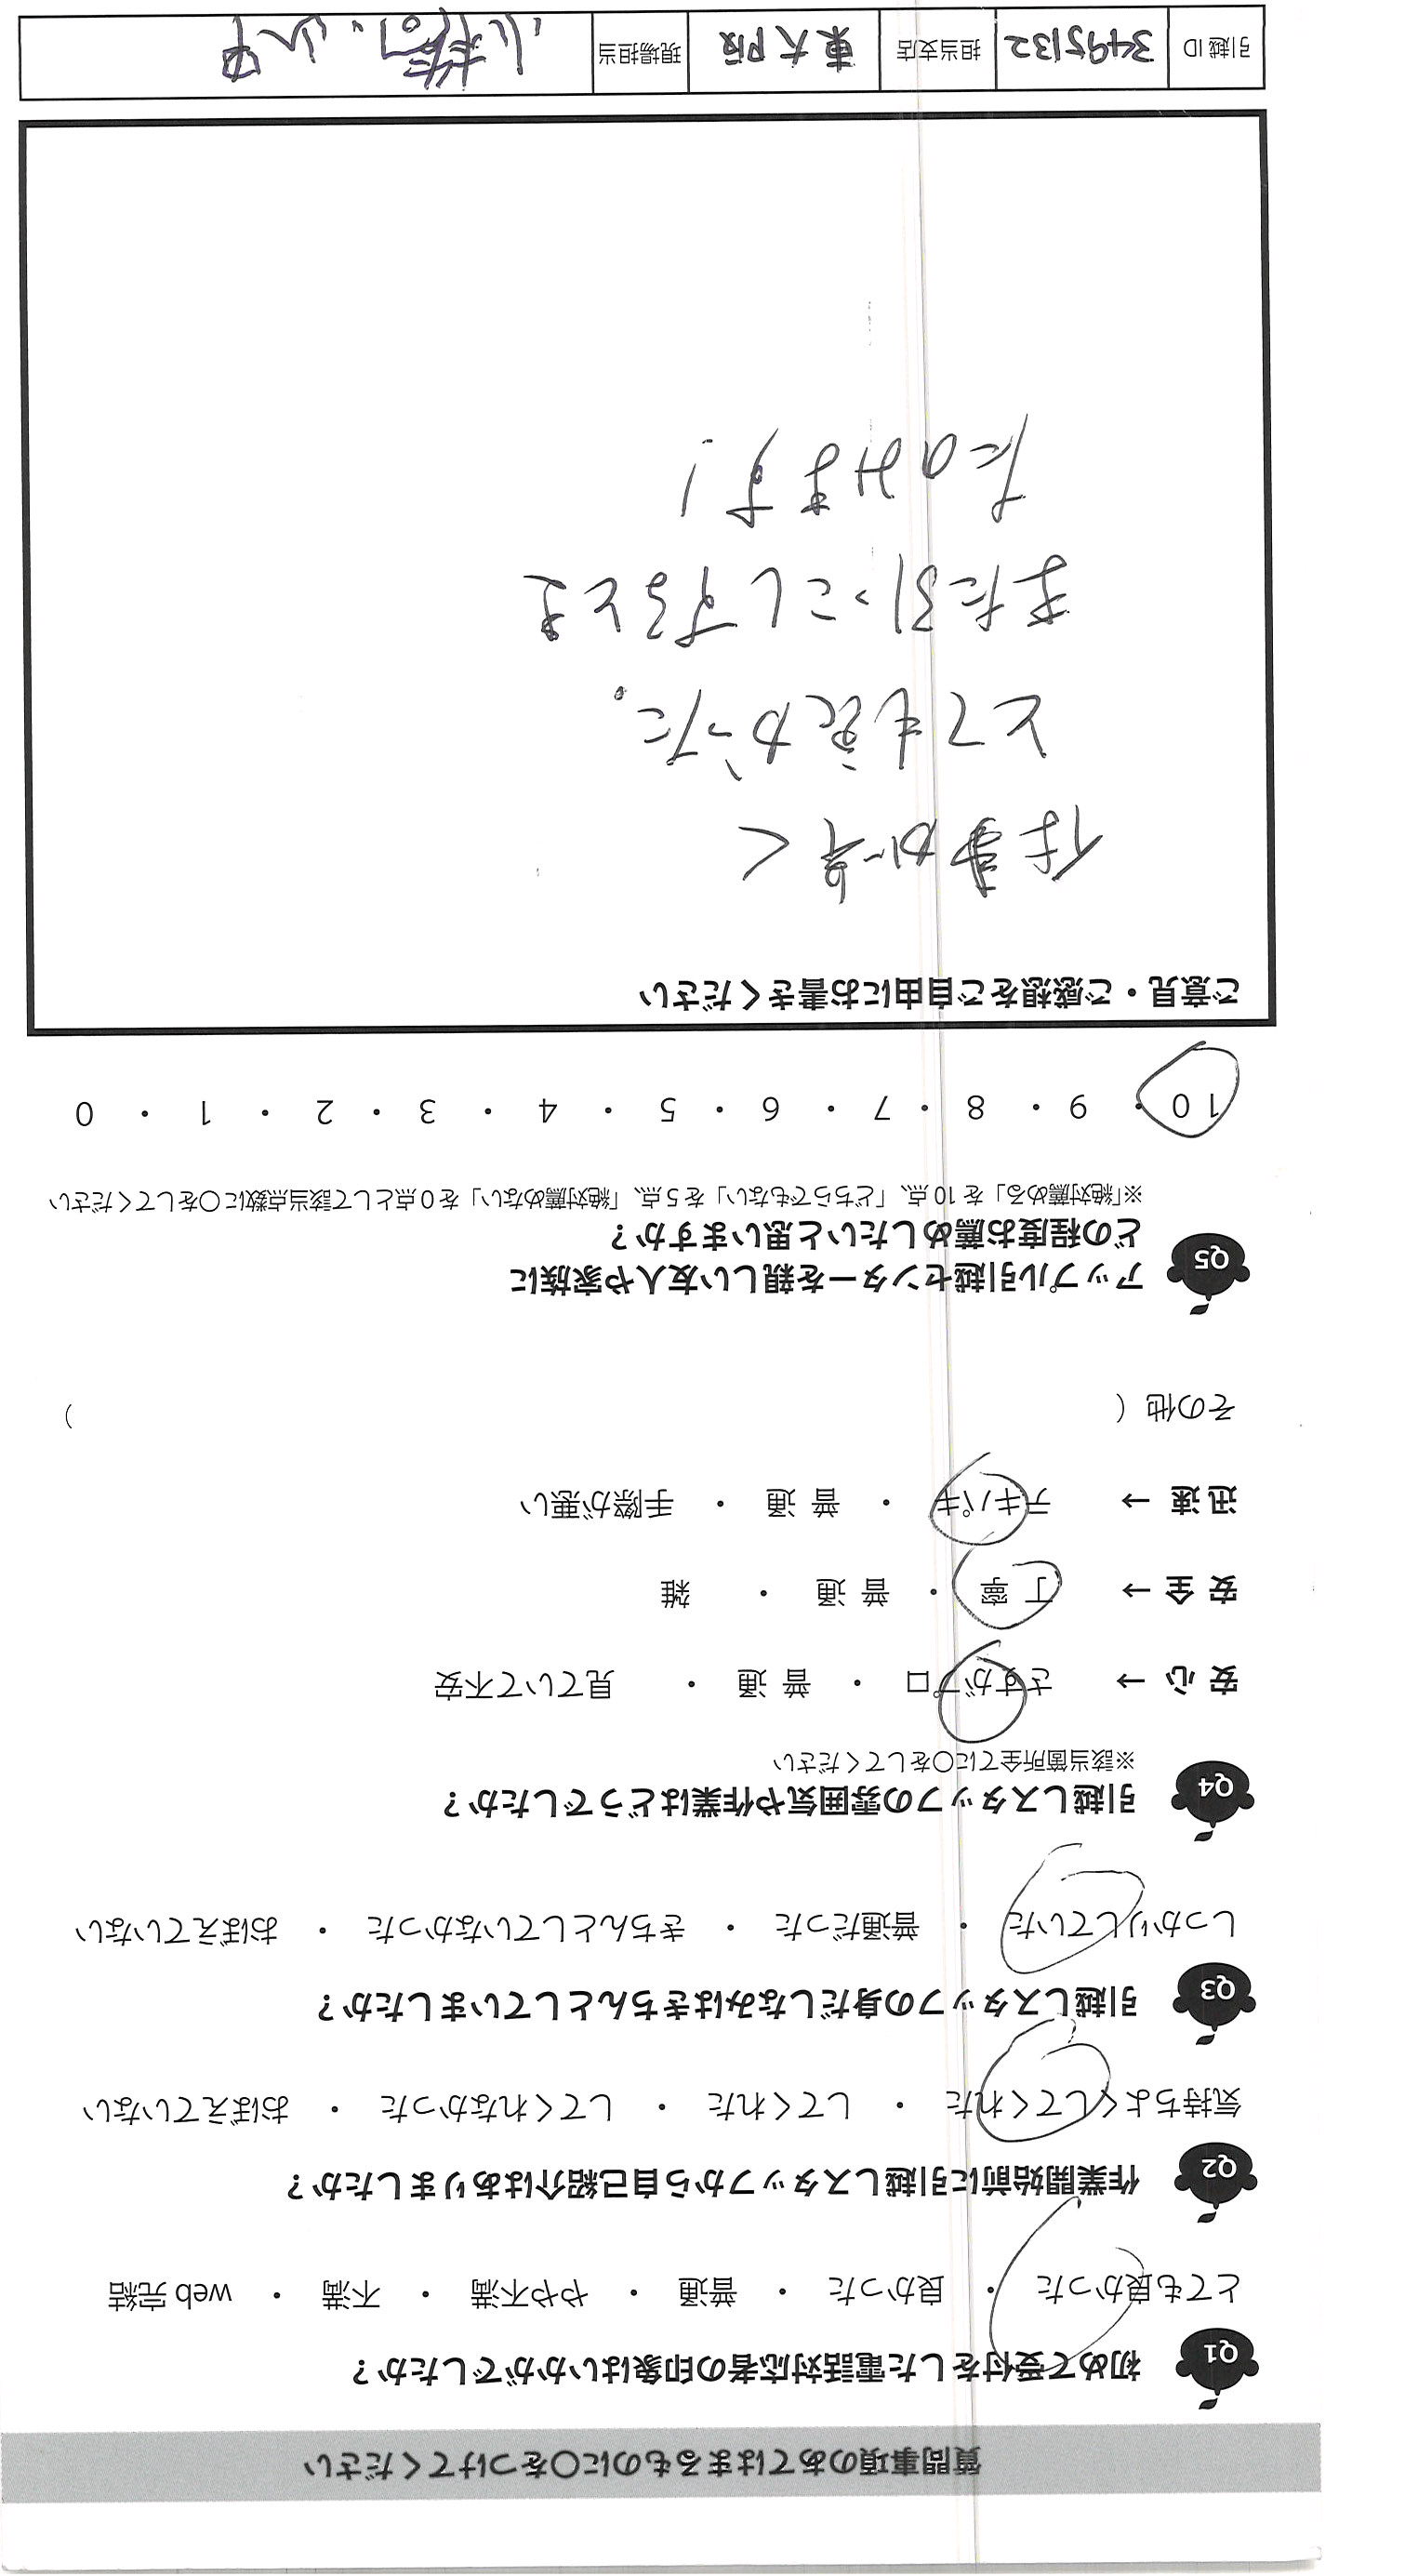 質問事項のあてはまるものに〇をつけてください
Q1 初めて受付をした電話対応者の印象はいかがでしたか？
とても良かった ・ 良かった ・ 普通 ・ やや不満 ・ 不満 ・ web 完結
Q2 作業開始前に引越しスタッフから自己紹介はありましたか？
気持ちよくしてくれた ・ してくれた ・ してくれなかった ・ おぼえていない
Q3 引越しスタッフの身だしなみはきちんとしていましたか？
しっかりしていた ・ 普通だった ・ きちんとしていなかった ・ おぼえていない
Q4 引越しスタッフの雰囲気や作業はどうでしたか？
※該当箇所全てに〇をしてください
安 心 → さすがプロ ・ 普 通 ・ 見ていて不安
安 全 → 丁 寧 ・ 普 通 ・ 雑
迅 速 → テキパキ ・ 普 通 ・ 手際が悪い
その他（ ）
Q5 アップル引越センターを親しい友人や家族に
どの程度お薦めしたいと思いますか？
※「絶対薦める」を 10 点、「どちらでもない」を 5 点、「絶対薦めない」を 0 点として該当点数に〇をしてください
10 ・ 9 ・ 8 ・ 7 ・ 6 ・ 5 ・ 4 ・ 3 ・ 2 ・ 1 ・ 0
ご意見・ご感想をご自由にお書きください
仕事が早く
とても良かった。
また引っこしするとき
たのみます！
引越 ID 3495132 担当支店 東大阪 現場担当